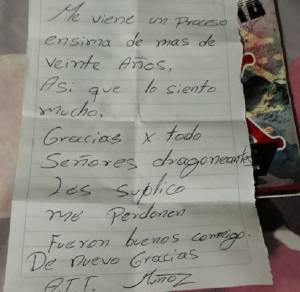 Me viene un Proceso
ensima de mas de
veinte Años,
Asi que lo siento
mucho.
Gracias x todo
Señores dragoneantes
Les suplico
me Perdonen
Fueron buenos conmigo.
De nuevo Gracias
A.T.T. Muñoz